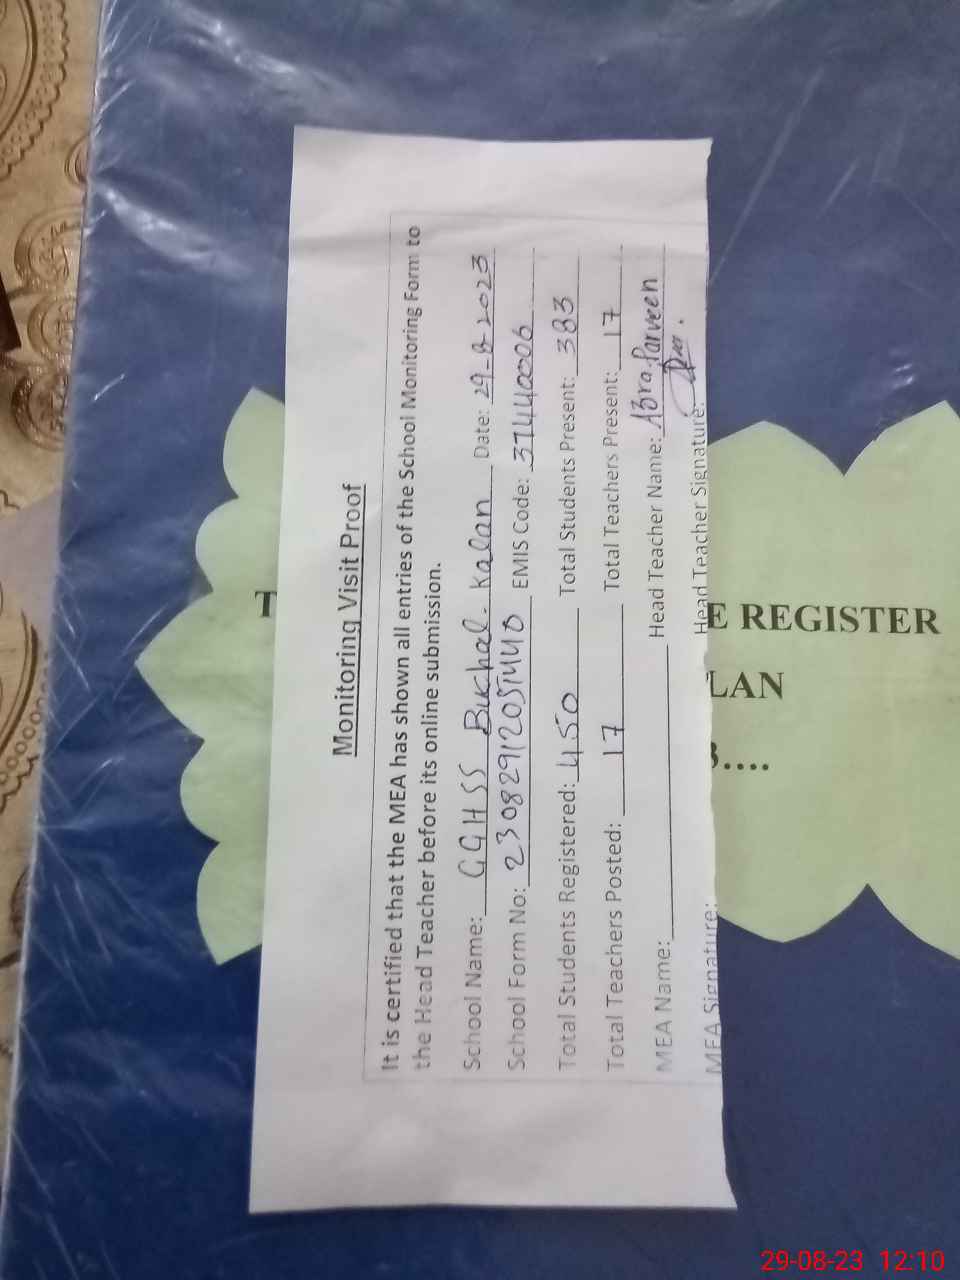 Monitoring Visit Proof
It is certified that the MEA has shown all entries of the School Monitoring Form to
the Head Teacher before its online submission.
School Name: GGHSS Buchal Kalan Date: 29-8-2023
School Form No: EMIS Code: 37440006
Total Students Registered: 450 Total Students Present: 383
Total Teachers Posted: 17 Total Teachers Present: 17
MEA Name: Head Teacher Name: Parveen
MEA Signature: Head Teacher Signature:
T E REGISTER
LAN
3....
29-08-23 12:10